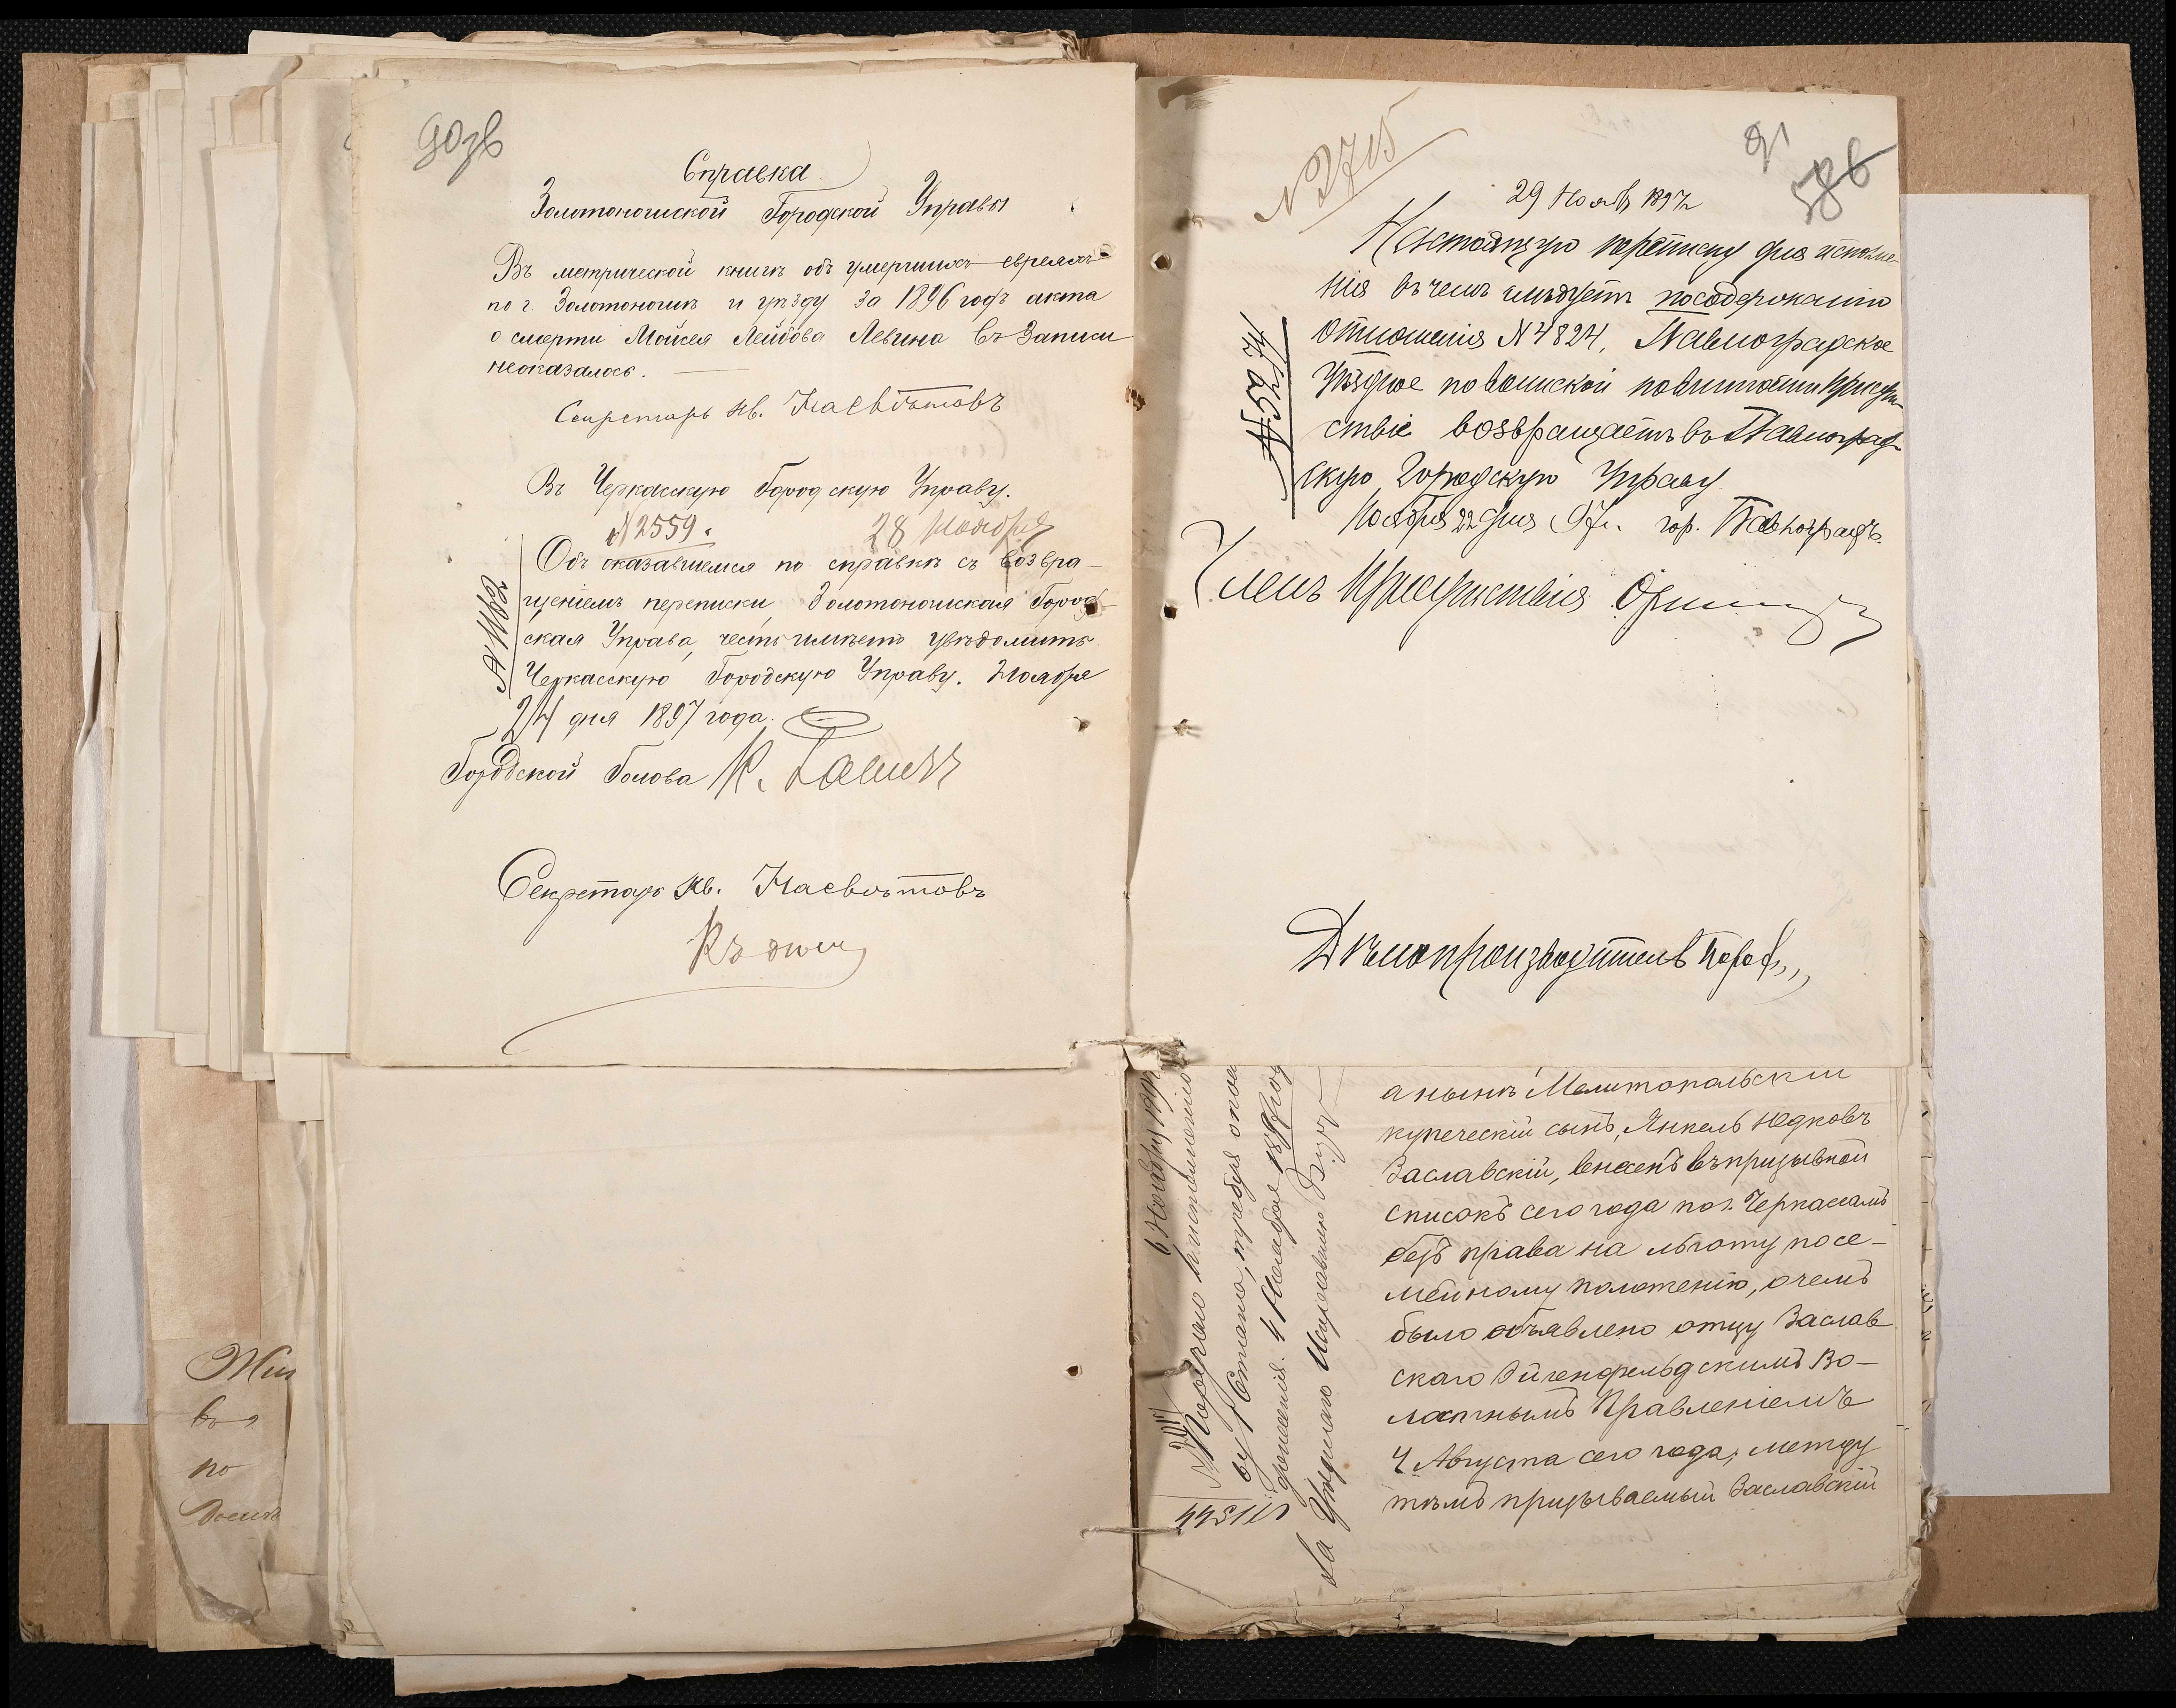 90зв
Справка
Золотоношской Городской Управы
Въ метрической книгѣ объ умершихъ евреяхъ
по г. Золотоношѣ и уѣзду за 1896 годъ акта
о смерти Мойсея Лейбова Левина въ записи
неоказалось.
Секретарь Ив. Насвѣтовъ
Въ Черкасскую Городскую Управу.
№2559. 28 Ноября
Объ оказавшемся по справкѣ съ возвра-
щеніемъ переписки, Золотоношская Город-
ская Управа, честь имѣетъ увѣдомить
Черкасскую Городскую Управу. Ноября
24 дня 1897 года.
№ 1182
Городской Голова
Секретарь Ив. Насвѣтовъ
Къ дѣлу
№ 2715
91
586
29 Нояб 1897
Настоящую переписку для исполне-
нія въ чемъ слѣдуетъ по содержанію
отношенія №4824, Павлоградское
Уѣздное по воинской повинности Присут-
ствіе возвращаетъ въ Павлоград-
скую Городскую Управу
Ноября 22 дня 97 г. гор. Павлоградъ.
Членъ Присутствія
Дѣлопроизводитель
а нынѣ Мелитопольскій
купеческій сынъ, Янкель Юдковъ
Заславскій, внесенъ въ призывной
списокъ сего года по г. Черкассамъ
безъ права на льготу по се-
мейному положенію, о чемъ
было объявлено отцу Заслав
скаго Эйгенфельдскимъ Во-
лостнымъ Правленіемъ
4 Августа сего года; между
тѣмъ призываемый Заславскій
6 Ноября 1897
4 Ноября 1897 год
Жит
въ
по